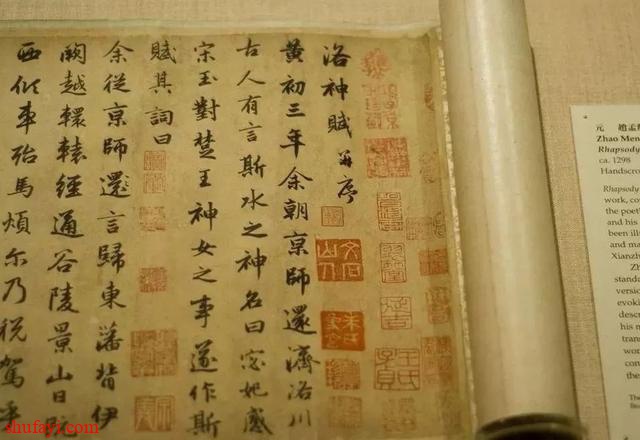 洛神賦 并序
黃初三年余朝亰師還濟洛川
古人有言斯水之神名曰宓妃感
宋玉對楚王神女之事遂作斯
賦其詞曰
余從亰師還言歸東藩背伊
闕越轘轅經通谷陵景山日既
西傾車殆馬煩尔乃稅駕乎
文石山人
元 趙孟
Zhao Men
Rhapsody
ca. 1298
Handscro
Rhapsody
work, co
the poet
and his
been illu
and ma
Xianzh
Zh
standa
versio
evoki
descr
his n
trans
work
con
the
The
shufayi.com